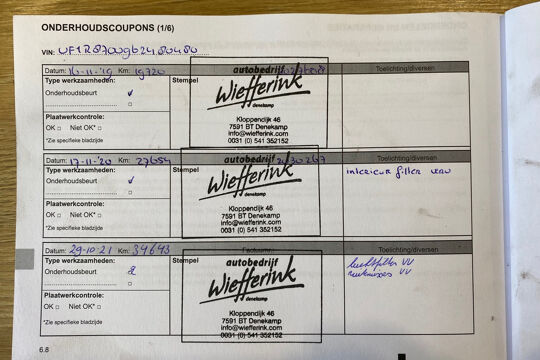 ONDERHOUDSCOUPONS (1/6)
VIN:
Datum: 16-11-'19 Km: 19720 Toelichting/diversen
Type werkzaamheden: Stempel
Onderhoudsbeurt
Plaatwerkcontrole:
OK □ Niet OK* □
*Zie specifieke bladzijde
autobedrijf
Wiefferink
denekamp
Kloppendijk 46
7591 BT Denekamp
info@wiefferink.com
0031 (0) 541 352152
Datum: 17-11-'20 Km: 27654 Toelichting/diversen
Type werkzaamheden: Stempel
Onderhoudsbeurt
Plaatwerkcontrole:
OK □ Niet OK* □
*Zie specifieke bladzijde
autobedrijf
Wiefferink
denekamp
Kloppendijk 46
7591 BT Denekamp
info@wiefferink.com
0031 (0) 541 352152
interieur filter
Datum: 29-10-21 Km: 34643 Factuurnr.: Toelichting/diversen
Type werkzaamheden: Stempel
Onderhoudsbeurt
Plaatwerkcontrole:
OK □ Niet OK* □
*Zie specifieke bladzijde
autobedrijf
Wiefferink
denekamp
Kloppendijk 46
7591 BT Denekamp
info@wiefferink.com
0031 (0) 541 352152
luchtfilter VV
VV
6.8